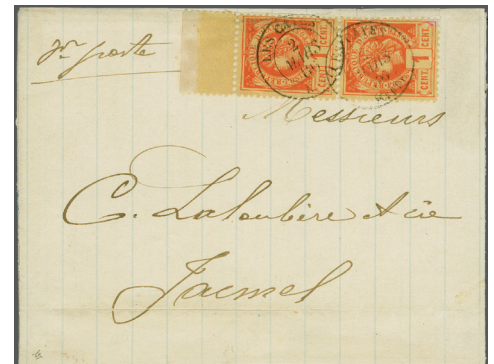 pr poste
LES CAYES
1 CENT.
1 CENT.
Messieurs
C. Laloubère & Cie
Jacmel